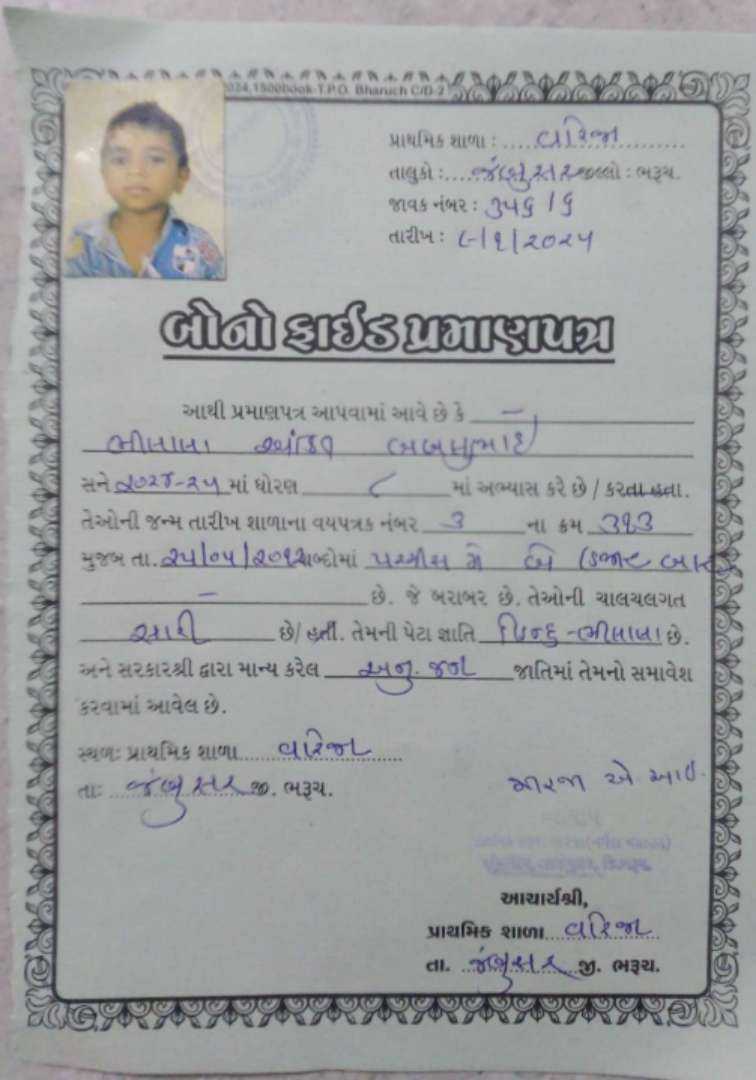 2024,1500book-T.P.O. Bharuch C/D-2
પ્રાથમિક શાળા : વારિજા
તાલુકો : જંબુસર જીલ્લો : ભરૂચ.
જાવક નંબર : ૩૫૬ / ૬
તારીખ : ૯/૧/૨૦૨૫
બોનોફાઈડ પ્રમાણપત્ર
આથી પ્રમાણપત્ર આપવામાં આવે છે કે
ભીલાલા
સને ૨૦૨૪-૨૫ માં ધોરણ ૮ માં અભ્યાસ કરે છે / કરતા હતા.
તેઓની જન્મ તારીખ શાળાના વયપત્રક નંબર ૩ ના ક્રમ ૩૧૩
મુજબ તા. ૨૫/૦૫/૨૦૧૨ શબ્દોમાં પચ્ચીસ મે બે હજાર બાર
છે. જે બરાબર છે. તેઓની ચાલચલગત
સારી છે/ હતી. તેમની પેટા જ્ઞાતિ હિન્દુ - ભીલાલા છે.
અને સરકારશ્રી દ્વારા માન્ય કરેલ અનુ. જન જાતિમાં તેમનો સમાવેશ
કરવામાં આવેલ છે.
સ્થળઃ પ્રાથમિક શાળા વારિજા
તાઃ જંબુસર જી. ભરૂચ.
આચાર્યશ્રી,
પ્રાથમિક શાળા વારિજા
તા. જંબુસર જી. ભરૂચ.